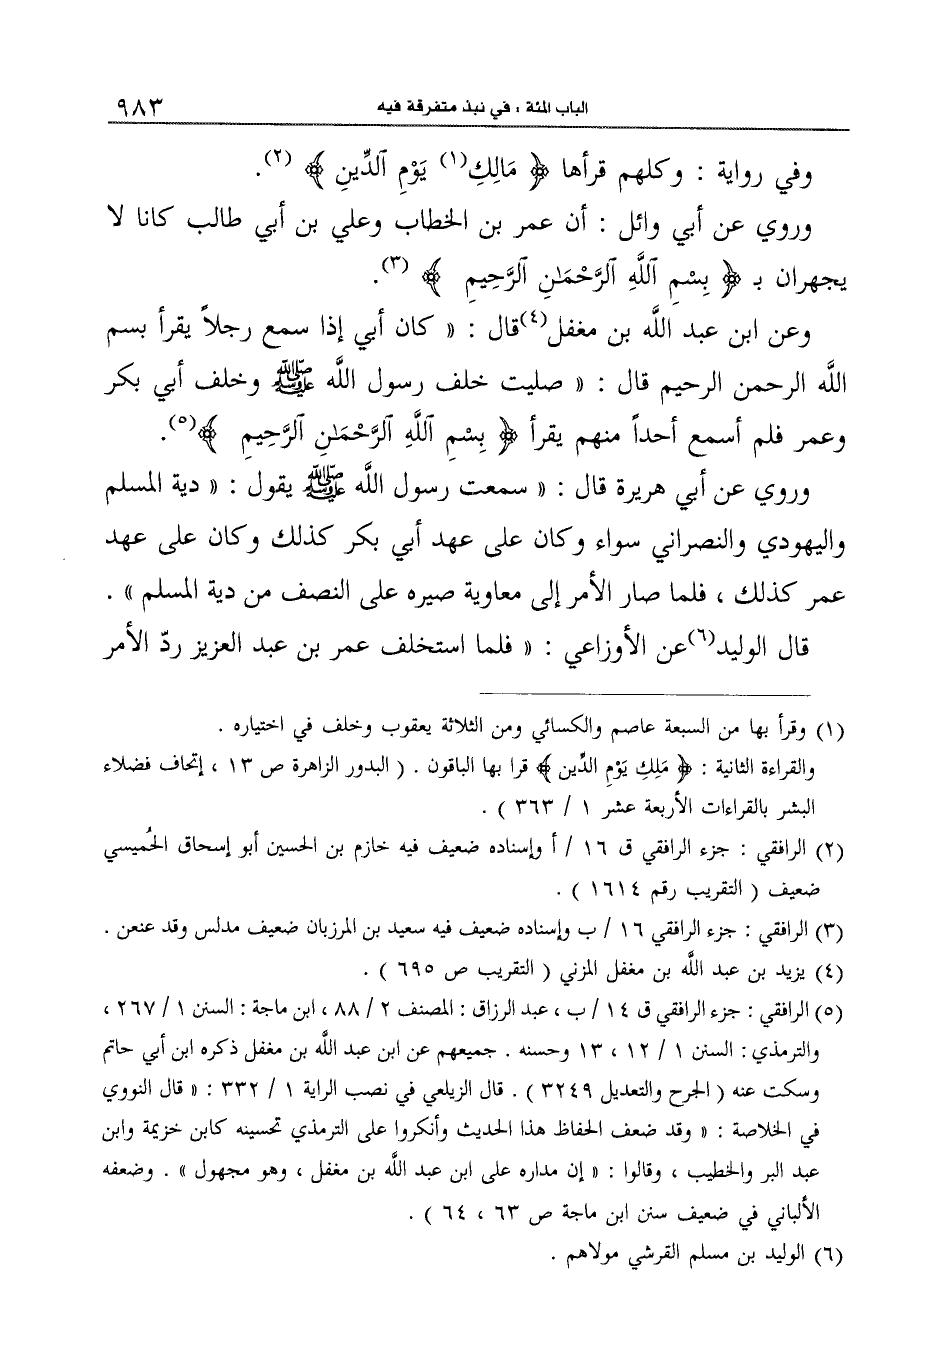 الباب المئة : في نبذ متفرقة فيه ٩٨٣
وفي رواية : وكلهم قرأها ﴿ مَالِكِ(١) يَوْمِ ٱلدِّينِ ﴾ (٢).
وروي عن أبي وائل : أن عمر بن الخطاب وعلي بن أبي طالب كانا لا
يجهران بـ ﴿ بِسْمِ ٱللَّهِ ٱلرَّحْمَـٰنِ ٱلرَّحِيمِ ﴾ (٣).
وعن ابن عبد اللَّه بن مغفل(٤)قال : « كان أبي إذا سمع رجلاً يقرأ بسم
اللَّه الرحمن الرحيم قال : « صليت خلف رسول اللَّه ﷺ وخلف أبي بكر
وعمر فلم أسمع أحداً منهم يقرأ ﴿ بِسْمِ ٱللَّهِ ٱلرَّحْمَـٰنِ ٱلرَّحِيمِ ﴾(٥).
وروي عن أبي هريرة قال : « سمعت رسول اللَّه ﷺ يقول : « دية المسلم
واليهودي والنصراني سواء وكان على عهد أبي بكر كذلك وكان على عهد
عمر كذلك ، فلما صار الأمر إلى معاوية صيره على النصف من دية المسلم » .
قال الوليد(٦)عن الأوزاعي : « فلما استخلف عمر بن عبد العزيز ردّ الأمر
(١) وقرأ بها من السبعة عاصم والكسائي ومن الثلاثة يعقوب وخلف في اختياره .
والقراءة الثانية : ﴿ مَلِكِ يَوْمِ الدِّين ﴾ قرا بها الباقون . ( البدور الزاهرة ص ١٣ ، إتحاف فضلاء
البشر بالقراءات الأربعة عشر ١ / ٣٦٣ ) .
(٢) الرافقي : جزء الرافقي ق ١٦ / أ وإسناده ضعيف فيه خازم بن الحسين أبو إسحاق الحُميسي
ضعيف ( التقريب رقم ١٦١٤ ) .
(٣) الرافقي : جزء الرافقي ١٦ / ب وإسناده ضعيف فيه سعيد بن المرزبان ضعيف مدلس وقد عنعن .
(٤) يزيد بن عبد اللَّه بن مغفل المزني ( التقريب ص ٦٩٥ ) .
(٥) الرافقي : جزء الرافقي ق ١٤ / ب ، عبد الرزاق : المصنف ٢ / ٨٨ ، ابن ماجة : السنن ١ / ٢٦٧ ،
والترمذي : السنن ١ / ١٢ ، ١٣ وحسنه . جميعهم عن ابن عبد اللَّه بن مغفل ذكره ابن أبي حاتم
وسكت عنه ( الجرح والتعديل ٣٢٤٩ ) . قال الزيلعي في نصب الراية ١ / ٣٣٢ : « قال النووي
في الخلاصة : « وقد ضعف الحفاظ هذا الحديث وأنكروا على الترمذي تحسينه كابن خزيمة وابن
عبد البر والخطيب ، وقالوا : « إن مداره على ابن عبد اللَّه بن مغفل ، وهو مجهول » . وضعفه
الألباني في ضعيف سنن ابن ماجة ص ٦٣ ، ٦٤ ) .
(٦) الوليد بن مسلم القرشي مولاهم .